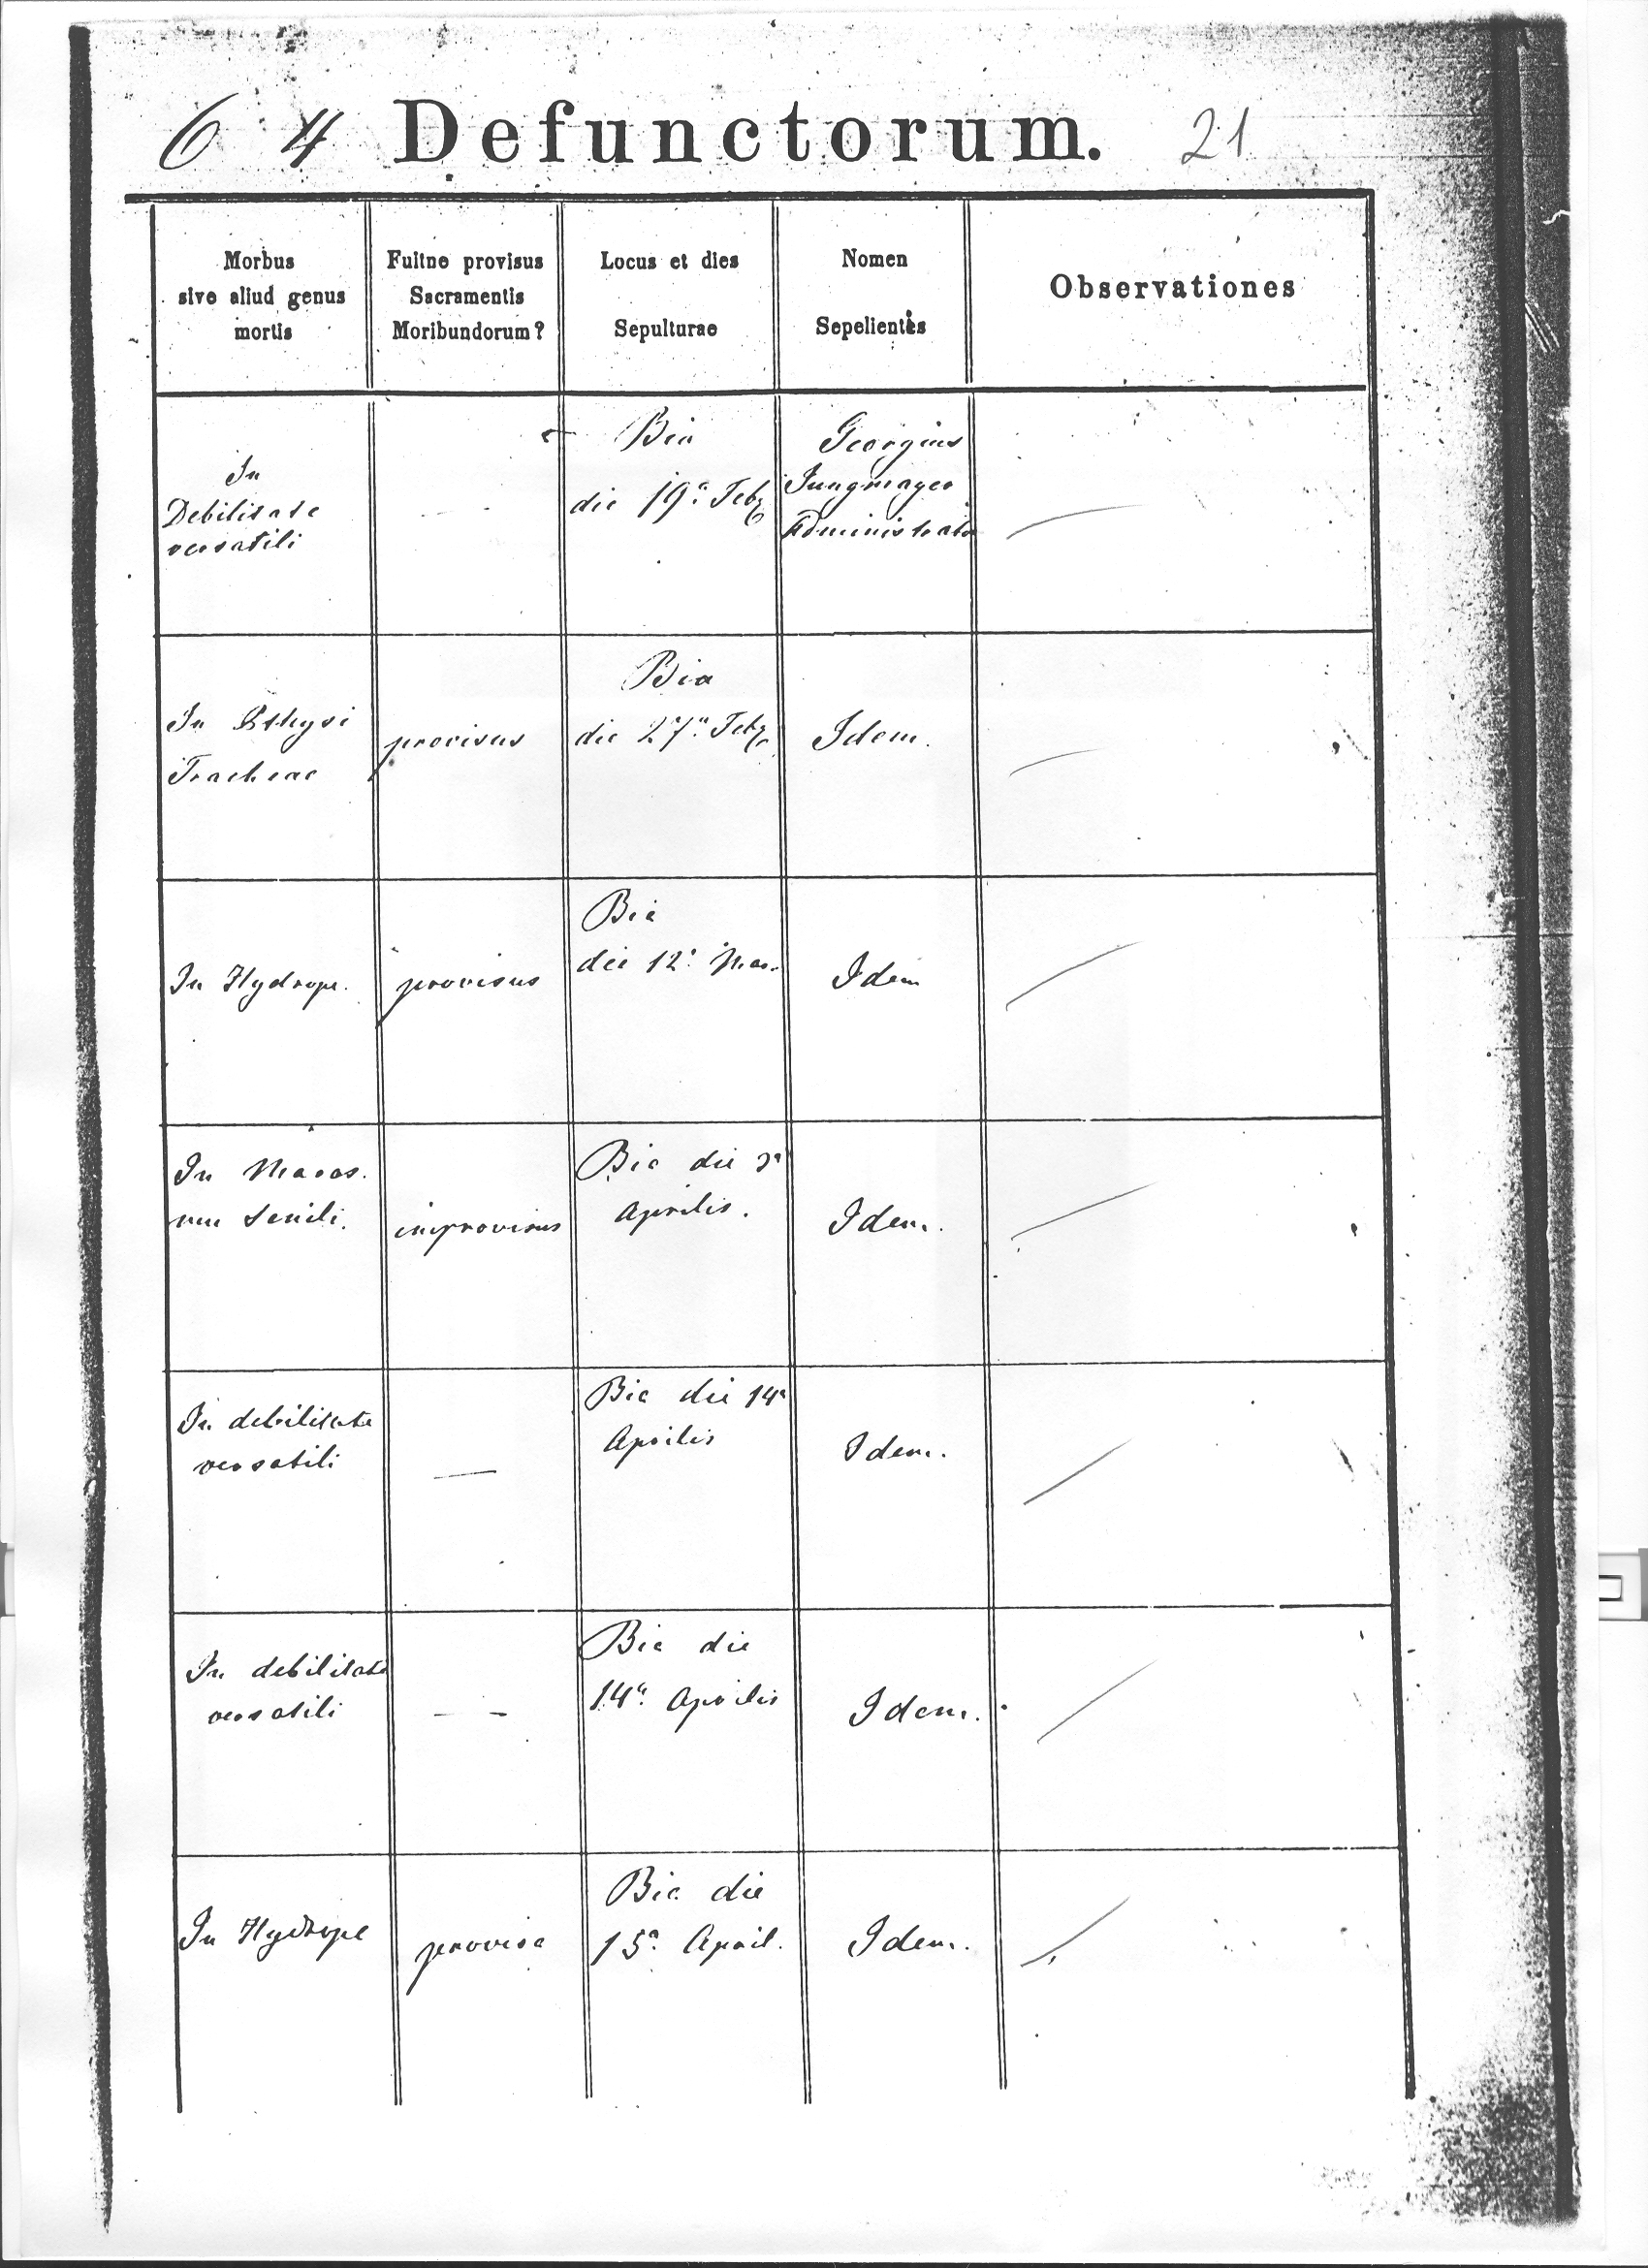 6 4 Defunctorum. 21
Morbus
sive aliud genus
mortis
Fuitne provisus
Sacramentis
Moribundorum?
Locus et dies
Sepulturae
Nomen
Sepelientis
Observationes
In
Debilitate
versatili
Bia
die 19ª Feb
Georgius
Jungmayer
Administrator
In Pthysi
Tracheae
provisus
Bia
die 27ª Feb
Idem.
In Hydrope.
provisus
Bia
die 12ª Mar.
Idem
In Maras-
mu Senili.
improvisus
Bia die
Aprilis.
Idem.
In debilitate
versatili
—
Bia die 14ª
Aprilis
Idem.
In debilitate
versatili
— —
Bia die
14ª Aprilis
Idem.
In Hydrope
provisa
Bia die
15ª April.
Idem.